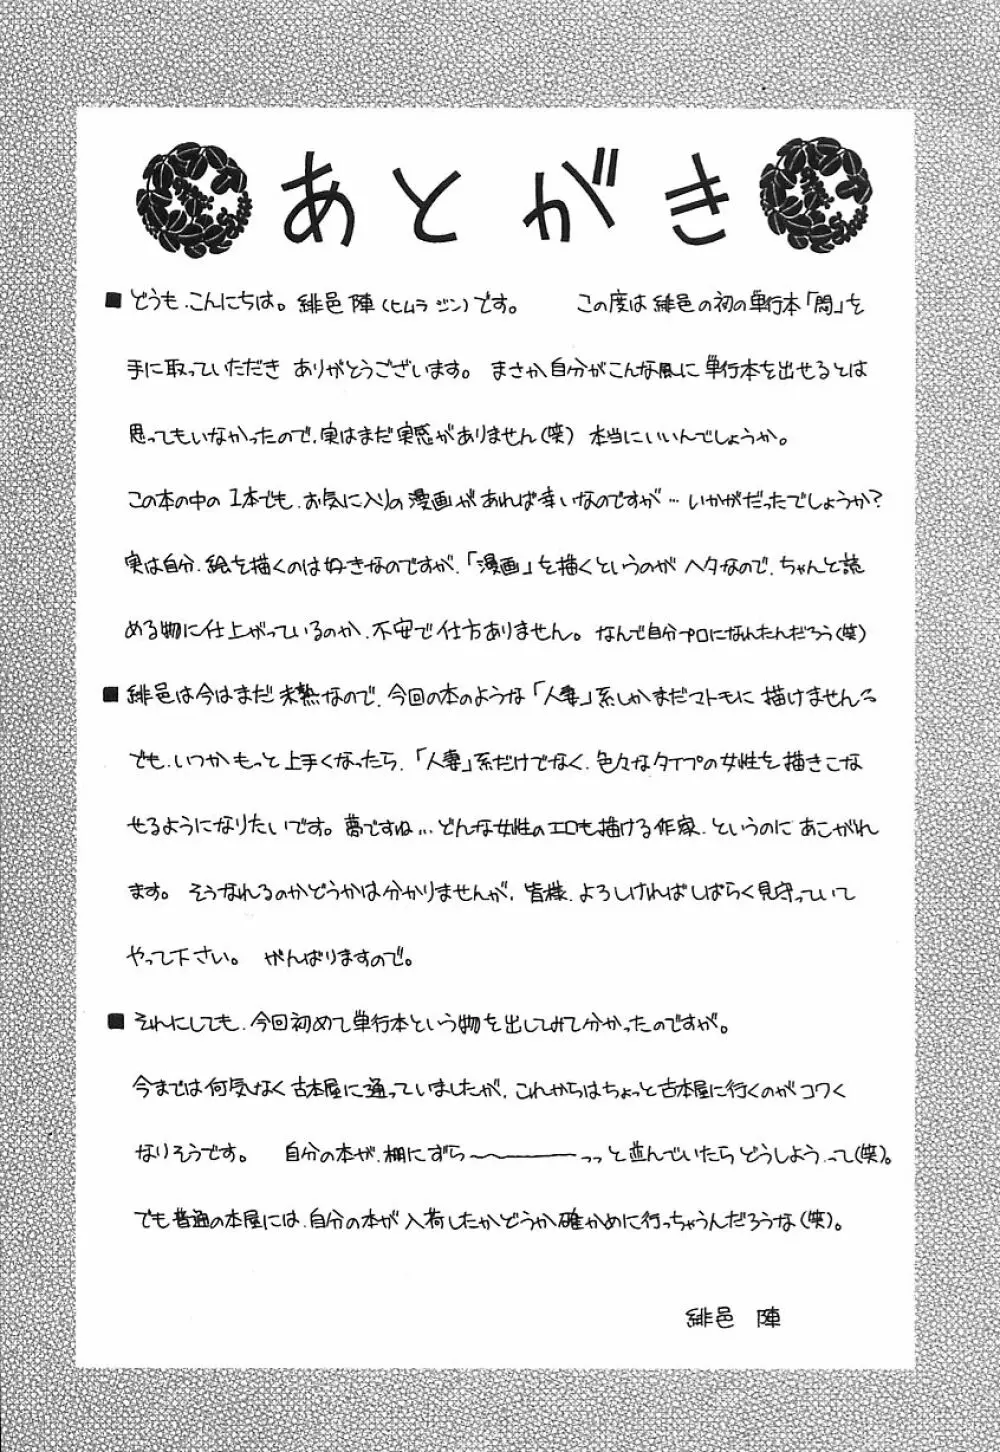 あとがき
■どうも、こんにちは。緋邑 陣(ヒムラ ジン)です。 この度は緋邑の初の単行本「悶」を
手に取っていただき ありがとうございます。まさか自分がこんな風に単行本を出せるとは
思ってもいなかったので、実はまだ実感がありません(笑) 本当にいいんでしょうか。
この本の中の1本でも、お気に入りの漫画があれば幸いなのですが…いかがだったでしょうか?
実は自分、絵を描くのは好きなのですが、「漫画」を描くというのがヘタなので、ちゃんと読
める物に仕上がっているのか、不安で仕方ありません。なんで自分プロになれたんだろう(笑)
■緋邑は今はまだ未熟なので、今回の本のような「人妻」系しかまだマトモに描けません。
でも、いつかもっと上手くなったら、「人妻」系だけでなく、色々なタイプの女性を描きこな
せるようになりたいです。夢ですね…どんな女性のエロも描ける作家、というのにあこがれ
ます。そうなれるのかどうかは分かりませんが、皆様、よろしければしばらく見守っていて
やって下さい。がんばりますので。
■それにしても、今回初めて単行本という物を出してみて分かったのですが。
今までは何気なく古本屋に通っていましたが、これからはちょっと古本屋に行くのがコワく
なりそうです。 自分の本が、棚にずら〜〜〜っっと並んでいたらどうしよう、って(笑)。
でも普通の本屋には、自分の本が入荷したかどうか確かめに行っちゃうんだろうな(笑)。
緋邑 陣